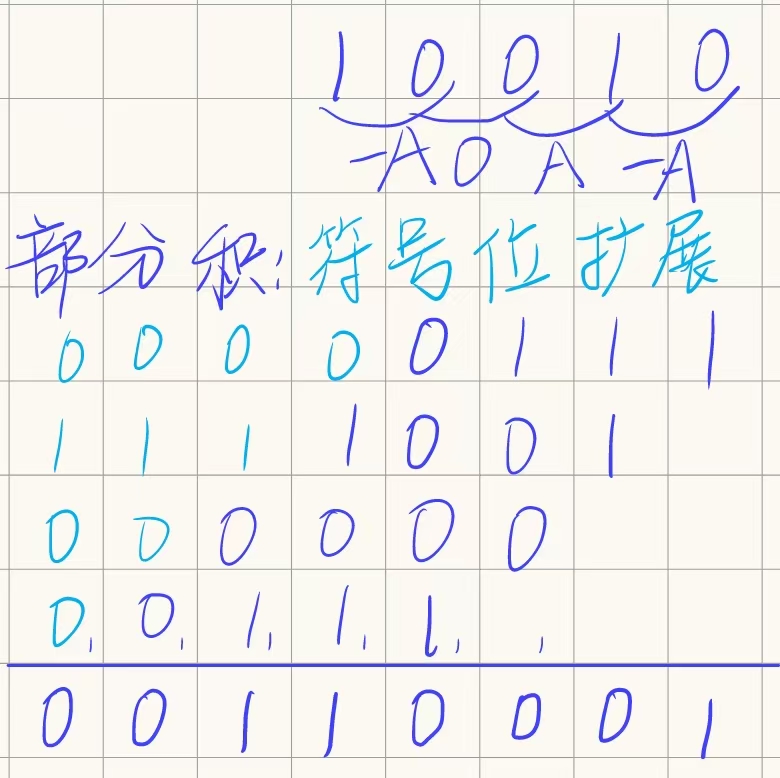 1 0 0 1 0
-A 0 A -A
部分积: 符号位扩展
0 0 0 0 0 1 1 1
1 1 1 1 0 0 1
0 0 0 0 0 0
0, 0, 1, 1, 1, ,
0 0 1 1 0 0 0 1